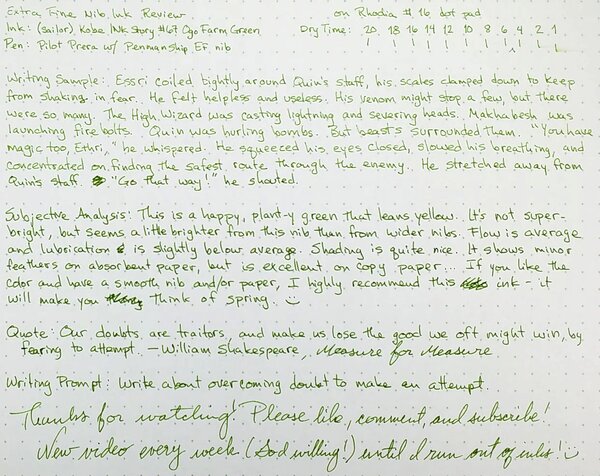 Extra Fine Nib Ink Review on Rhodia #16 dot pad
Ink: (Sailor) Kobe INK Story #67 Cgo Farm Green Dry Time: 20 18 16 14 12 10 8 6 4 2 1
Pen: Pilot Prera w/ Penmanship EF nib
Writing Sample: Essri coiled tightly around Quin's staff, his scales clamped down to keep
from shaking in fear. He felt helpless and useless. His venom might stop a few, but there
were so many. The High Wizard was casting lightning and severing heads. Makhabesh was
launching firebolts. Quin was hurling bombs. But beasts surrounded them. "You have
magic too, Ethri," he whispered. He squeezed his eyes closed, slowed his breathing, and
concentrated on finding the safest route through the enemy. He stretched away from
Quin's staff. "Go that way!" he shouted.
Subjective Analysis: This is a happy, plant-y green that leans yellow. It's not super-
bright, but seems a little brighter from this nib than from wider nibs. Flow is average
and lubrication is slightly below average. Shading is quite nice. It shows minor
feathers on absorbent paper, but is excellent on copy paper... If you like the
color and have a smooth nib and/or paper, I highly recommend this ink - it
will make you think of spring. :)
Quote: Our doubts are traitors, and make us lose the good we oft might win, by
fearing to attempt. — William Shakespeare, Measure for Measure
Writing Prompt: Write about overcoming doubt to make an attempt.
Thanks for watching! Please like, comment, and subscribe!
New video every week (God willing!) until I run out of inks! :)